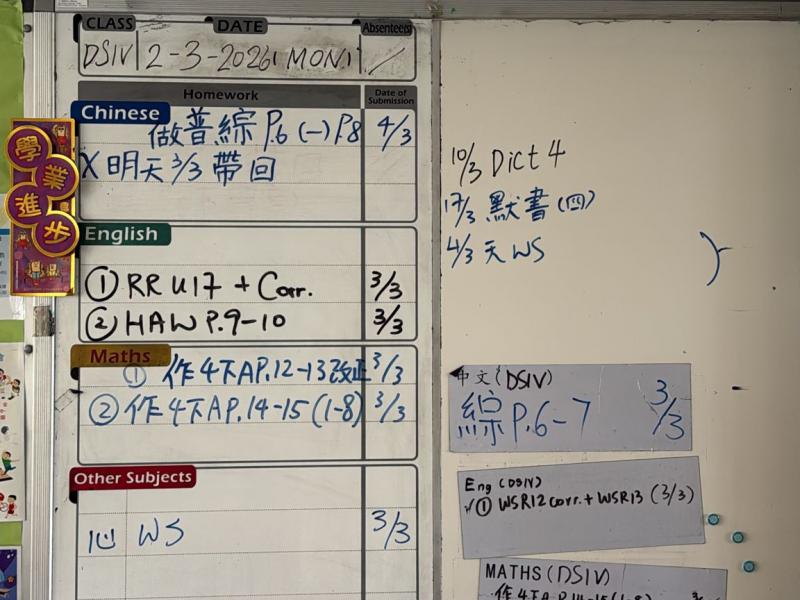 CLASS DATE Absentees
DSIV 2-3-2026 MON.
Homework Date of Submission
Chinese
做普綜 P.6 (一) P.8 4/3
X 明天 3/3 帶回
English
① RR U17 + Corr. 3/3
② HAW P.9-10 3/3
Maths
① 作4下A P.12-13 改正 3/3
② 作4下A P.14-15 (1-8) 3/3
Other Subjects
心 WS 3/3
學業進步
10/3 Dict 4
17/3 默書 (四)
4/3 天 WS
中文 (DSIV)
綜 P.6-7 3/3
Eng (DSIV)
① WSR12 corr. + WSR13 (3/3)
MATHS (DSIV)
作4下A P.14-15 (1-8)